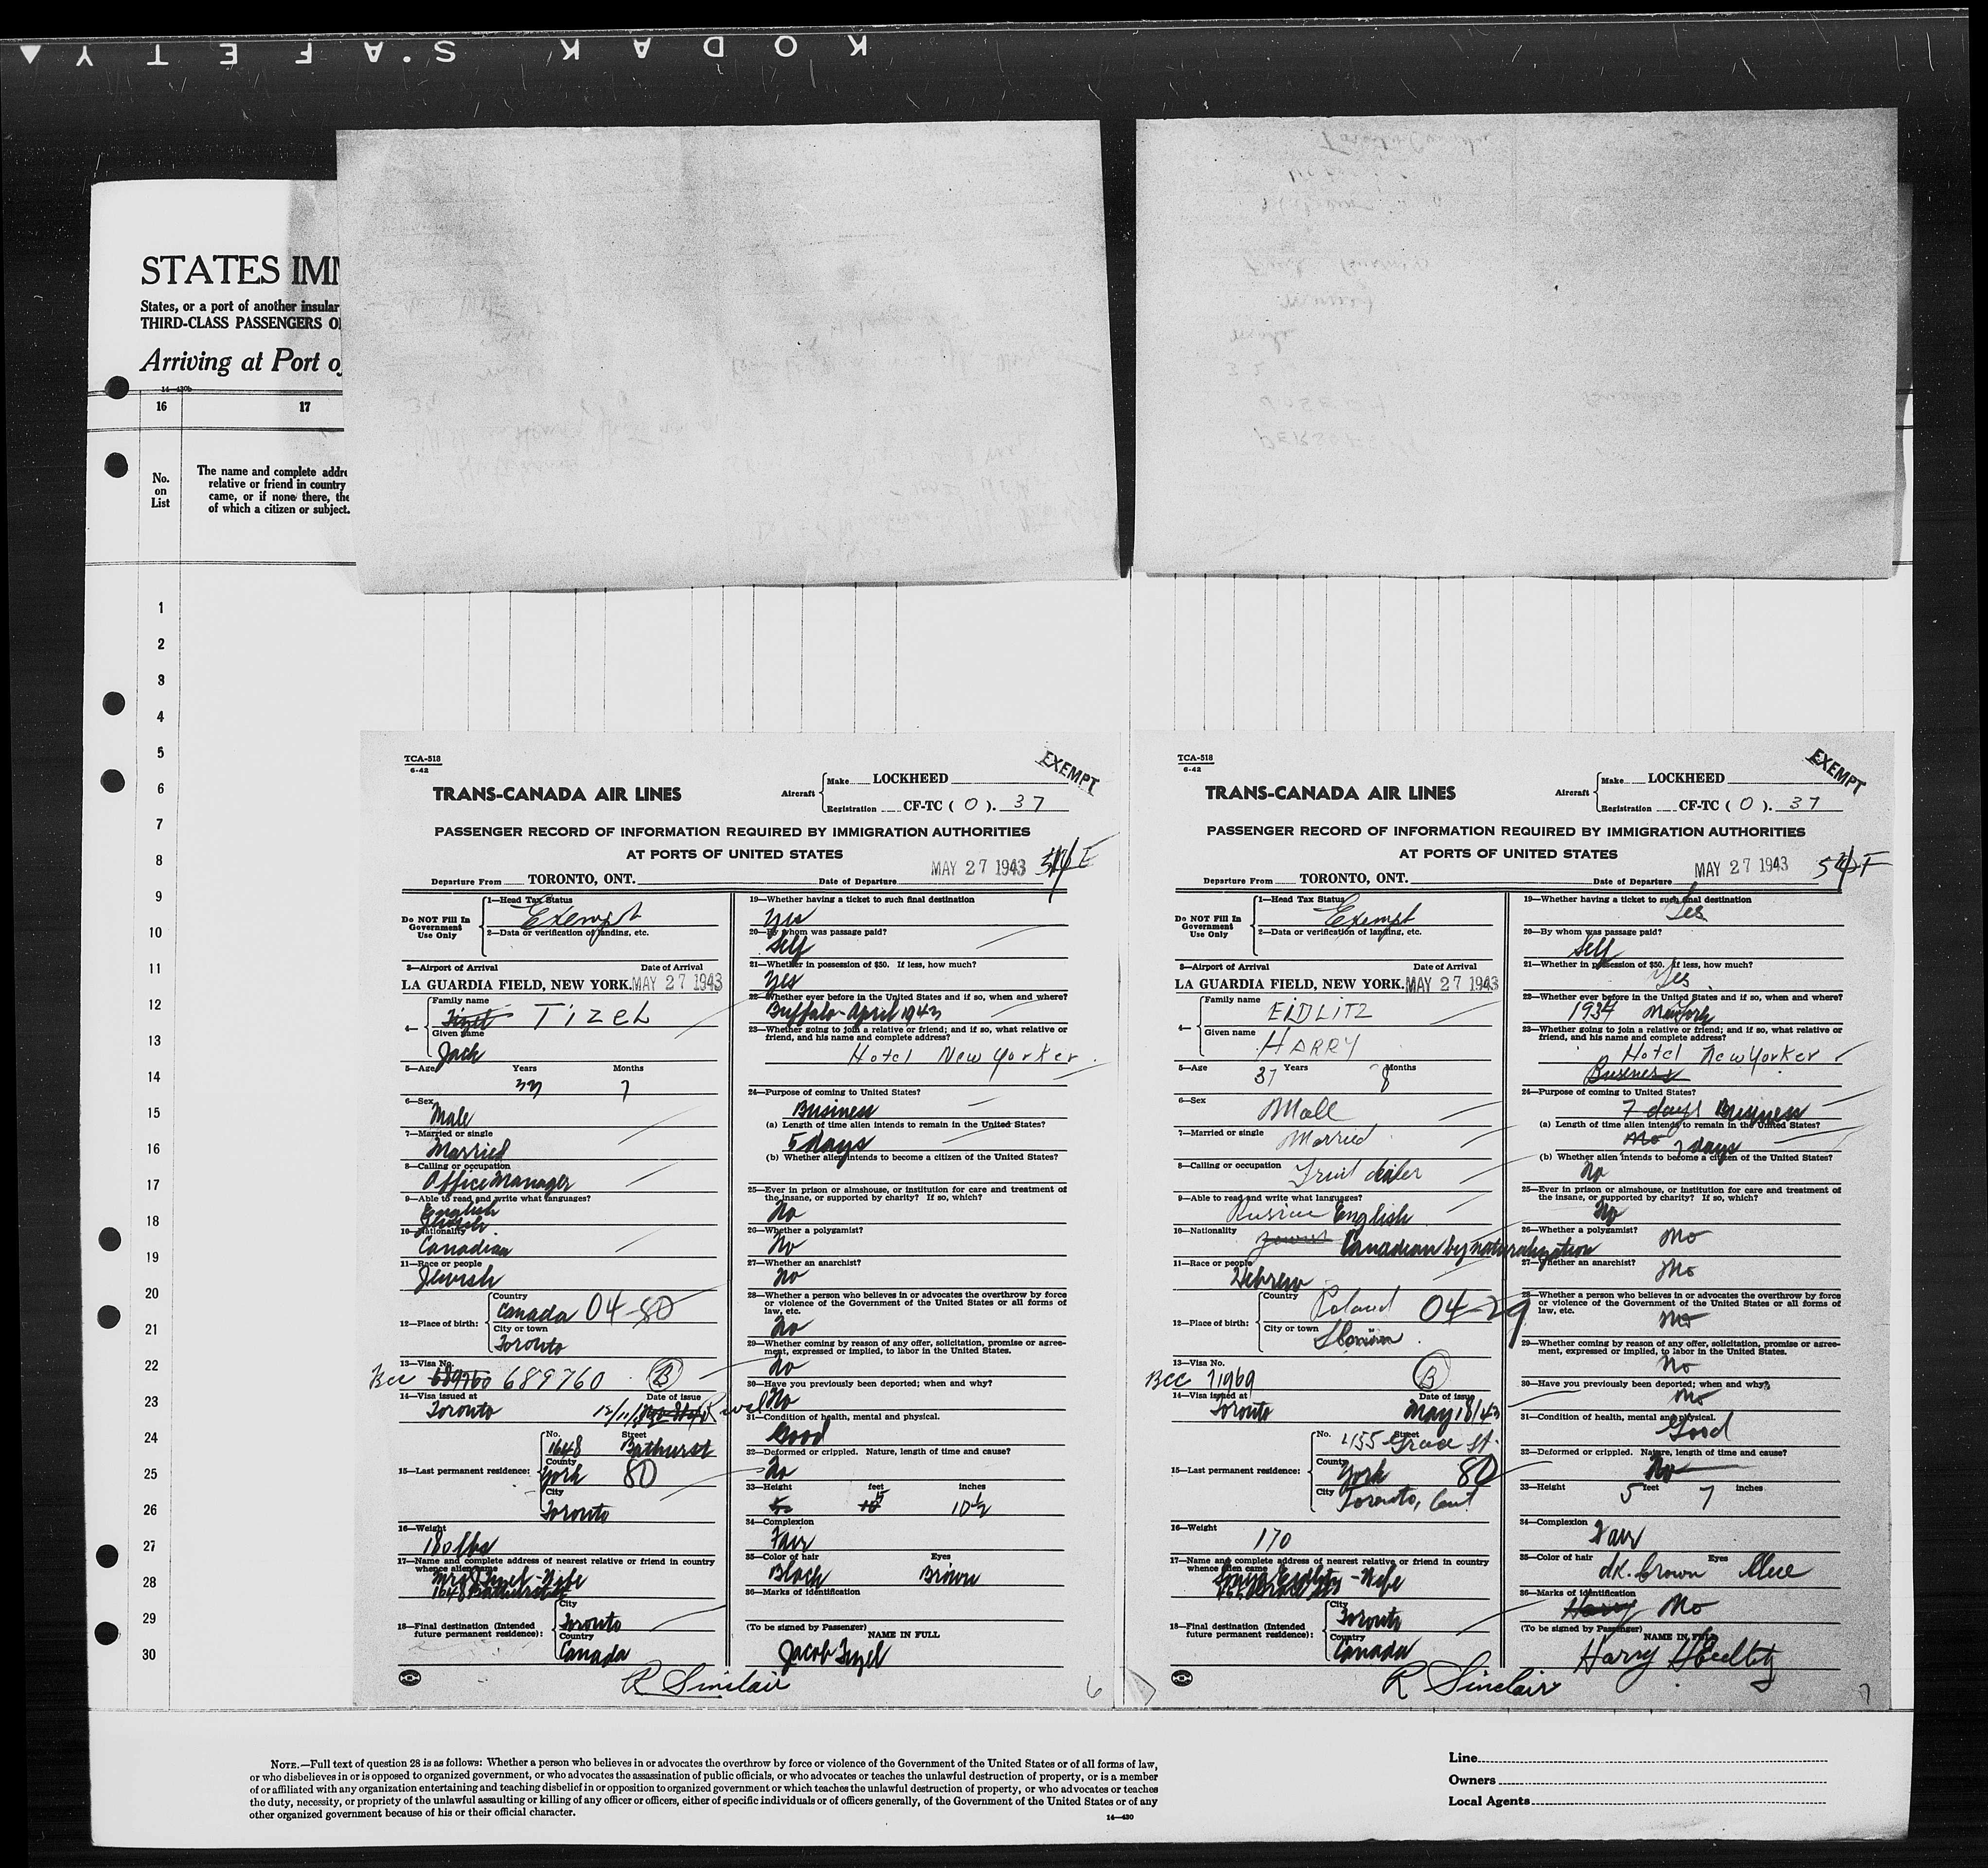 KODAK S.AFETY
STATES IMM
States, or a port of another insular
THIRD-CLASS PASSENGERS O
Arriving at Port o
14—430b
16 17
No. on List
The name and complete addre
relative or friend in country
came, or if none there, the
of which a citizen or subject.
1
2
3
4
5
6
7
8
9
10
11
12
13
14
15
16
17
18
19
20
21
22
23
24
25
26
27
28
29
30
TCA-518
6-42
EXEMPT
TRANS-CANADA AIR LINES
Aircraft
Make LOCKHEED
Registration CF-TC ( O ). 37
PASSENGER RECORD OF INFORMATION REQUIRED BY IMMIGRATION AUTHORITIES
AT PORTS OF UNITED STATES
Departure From TORONTO, ONT. Date of Departure MAY 27 1943
Do NOT Fill In Government Use Only
1—Head Tax Status
Exempt
2—Data or verification of landing, etc.
3—Airport of Arrival Date of Arrival
LA GUARDIA FIELD, NEW YORK. MAY 27 1943
4—
Family name
Tizel TIZEL
Given name
Jack
5—Age Years Months
33 7
6—Sex
Male
7—Married or single
Married
8—Calling or occupation
Office Manager
9—Able to read and write what languages?
English
Jewish
10—Nationality
Canadian
11—Race or people
Jewish
12—Place of birth:
Country
Canada 04-80
City or town
Toronto
13—Visa No.
BCC 689760 689760 B
14—Visa issued at Date of issue
Toronto 12/11/
15—Last permanent residence:
No. Street
1648 Bathurst
County
York 80
City
Toronto
16—Weight
180 lbs
17—Name and complete address of nearest relative or friend in country
whence alien came
Mrs J Tizel-Wife
1648 Bathurst St
18—Final destination (Intended
future permanent residence):
City
Toronto
Country
Canada
19—Whether having a ticket to such final destination
Yes
20—By whom was passage paid?
Self
21—Whether in possession of $50. If less, how much?
Yes
22—Whether ever before in the United States and if so, when and where?
Buffalo-April 1943
23—Whether going to join a relative or friend; and if so, what relative or
friend, and his name and complete address?
Hotel New Yorker
24—Purpose of coming to United States?
Business
(a) Length of time alien intends to remain in the United States?
5 days
(b) Whether alien intends to become a citizen of the United States?
25—Ever in prison or almshouse, or institution for care and treatment of
the insane, or supported by charity? If so, which?
No
26—Whether a polygamist?
No
27—Whether an anarchist?
No
28—Whether a person who believes in or advocates the overthrow by force
or violence of the Government of the United States or all forms of
law, etc.
No
29—Whether coming by reason of any offer, solicitation, promise or agree-
ment, expressed or implied, to labor in the United States.
No
30—Have you previously been deported; when and why?
No
31—Condition of health, mental and physical.
Good
32—Deformed or crippled. Nature, length of time and cause?
No
33—Height feet inches
5 10½
34—Complexion
Fair
35—Color of hair Eyes
Black Brown
36—Marks of identification
(To be signed by Passenger) NAME IN FULL
Jacob Tizel
R Sinclair
6
TCA-518
6-42
EXEMPT
TRANS-CANADA AIR LINES
Aircraft
Make LOCKHEED
Registration CF-TC ( O ). 37
PASSENGER RECORD OF INFORMATION REQUIRED BY IMMIGRATION AUTHORITIES
AT PORTS OF UNITED STATES
Departure From TORONTO, ONT. Date of Departure MAY 27 1943
Do NOT Fill In Government Use Only
1—Head Tax Status
Exempt
2—Data or verification of landing, etc.
3—Airport of Arrival Date of Arrival
LA GUARDIA FIELD, NEW YORK. MAY 27 1943
4—
Family name
EIDLITZ
Given name
HARRY
5—Age Years Months
37 8
6—Sex
Male
7—Married or single
Married
8—Calling or occupation
Fruit dealer
9—Able to read and write what languages?
Russian English
10—Nationality
Jewish Canadian by naturalization
11—Race or people
Hebrew
12—Place of birth:
Country
Poland 04-29
City or town
13—Visa No.
BCC 71969 B
14—Visa issued at Date of issue
Toronto May 18/43
15—Last permanent residence:
No. Street
455 Grace St.
County
York 80
City
Toronto, Ont
16—Weight
170
17—Name and complete address of nearest relative or friend in country
whence alien came
Sonya Eidlitz-Wife
18—Final destination (Intended
future permanent residence):
City
Toronto
Country
Canada
19—Whether having a ticket to such final destination
Yes
20—By whom was passage paid?
Self
21—Whether in possession of $50. If less, how much?
Yes
22—Whether ever before in the United States and if so, when and where?
1934 New York
23—Whether going to join a relative or friend; and if so, what relative or
friend, and his name and complete address?
Hotel New Yorker
Business
24—Purpose of coming to United States?
7 days Business
(a) Length of time alien intends to remain in the United States?
No 7 days
(b) Whether alien intends to become a citizen of the United States?
No
25—Ever in prison or almshouse, or institution for care and treatment of
the insane, or supported by charity? If so, which?
No
26—Whether a polygamist?
No
27—Whether an anarchist?
No
28—Whether a person who believes in or advocates the overthrow by force
or violence of the Government of the United States or all forms of
law, etc.
No
29—Whether coming by reason of any offer, solicitation, promise or agree-
ment, expressed or implied, to labor in the United States.
No
30—Have you previously been deported; when and why?
No
31—Condition of health, mental and physical.
Good
32—Deformed or crippled. Nature, length of time and cause?
No
33—Height feet inches
5 7
34—Complexion
Fair
35—Color of hair Eyes
dk. brown blue
36—Marks of identification
Harry No
(To be signed by Passenger) NAME IN FULL
Harry Eidlitz
R Sinclair
7
NOTE.—Full text of question 28 is as follows: Whether a person who believes in or advocates the overthrow by force or violence of the Government of the United States or of all forms of law,
or who disbelieves in or is opposed to organized government, or who advocates the assassination of public officials, or who advocates or teaches the unlawful destruction of property, or is a member
of or affiliated with any organization entertaining and teaching disbelief in or opposition to organized government or which teaches the unlawful destruction of property, or who advocates or teaches
the duty, necessity, or propriety of the unlawful assaulting or killing of any officer or officers, either of specific individuals or of officers generally, of the Government of the United States or of any
other organized government because of his or their official character.
14—430
Line
Owners
Local Agents